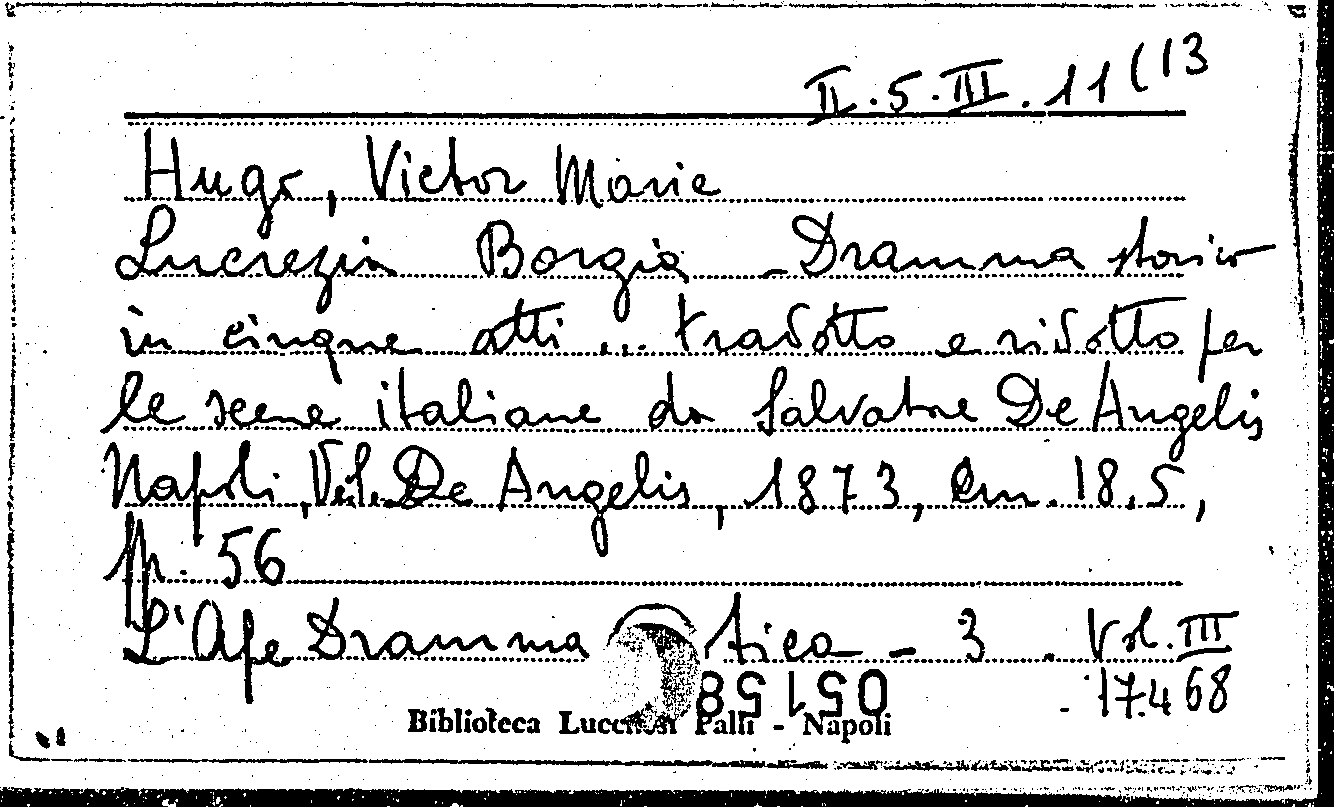 II.5.III.11(13
Hugo, Victor Marie
Lucrezia Borgia - Dramma storico
in cinque atti ... tradotto e ridotto per
le scene italiane da Salvatore De Angelis
Napoli, Vel. De Angelis, 1873, cm. 18,5,
pp. 56
L'Ape Dramma tica - 3 . Vol. III
17.4 68
051 58
Biblioteca Lucchesi Palli - Napoli